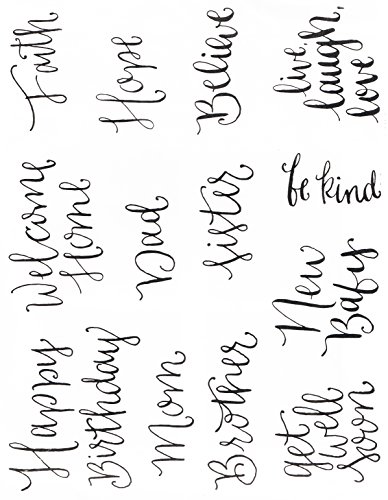 Faith
Hope
Believe
live,
laugh,
love
Welcome
Home
Dad
sister
be kind
New
Baby
Happy
Birthday
Mom
Brother
get
well
soon